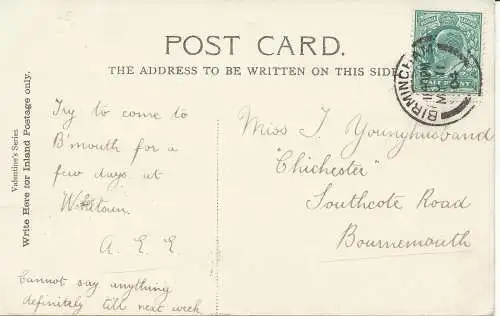 POST CARD.
THE ADDRESS TO BE WRITTEN ON THIS SIDE
Valentine's Series
Write Here for Inland Postage only.
Try to come to
B'mouth for a
few days at
A. E. E
Cannot say anything
definitely till next week
Miss J. Younghusband
"Chichester"
Southcote Road
Bournemouth
BIRMINGHAM
HALFPENNY